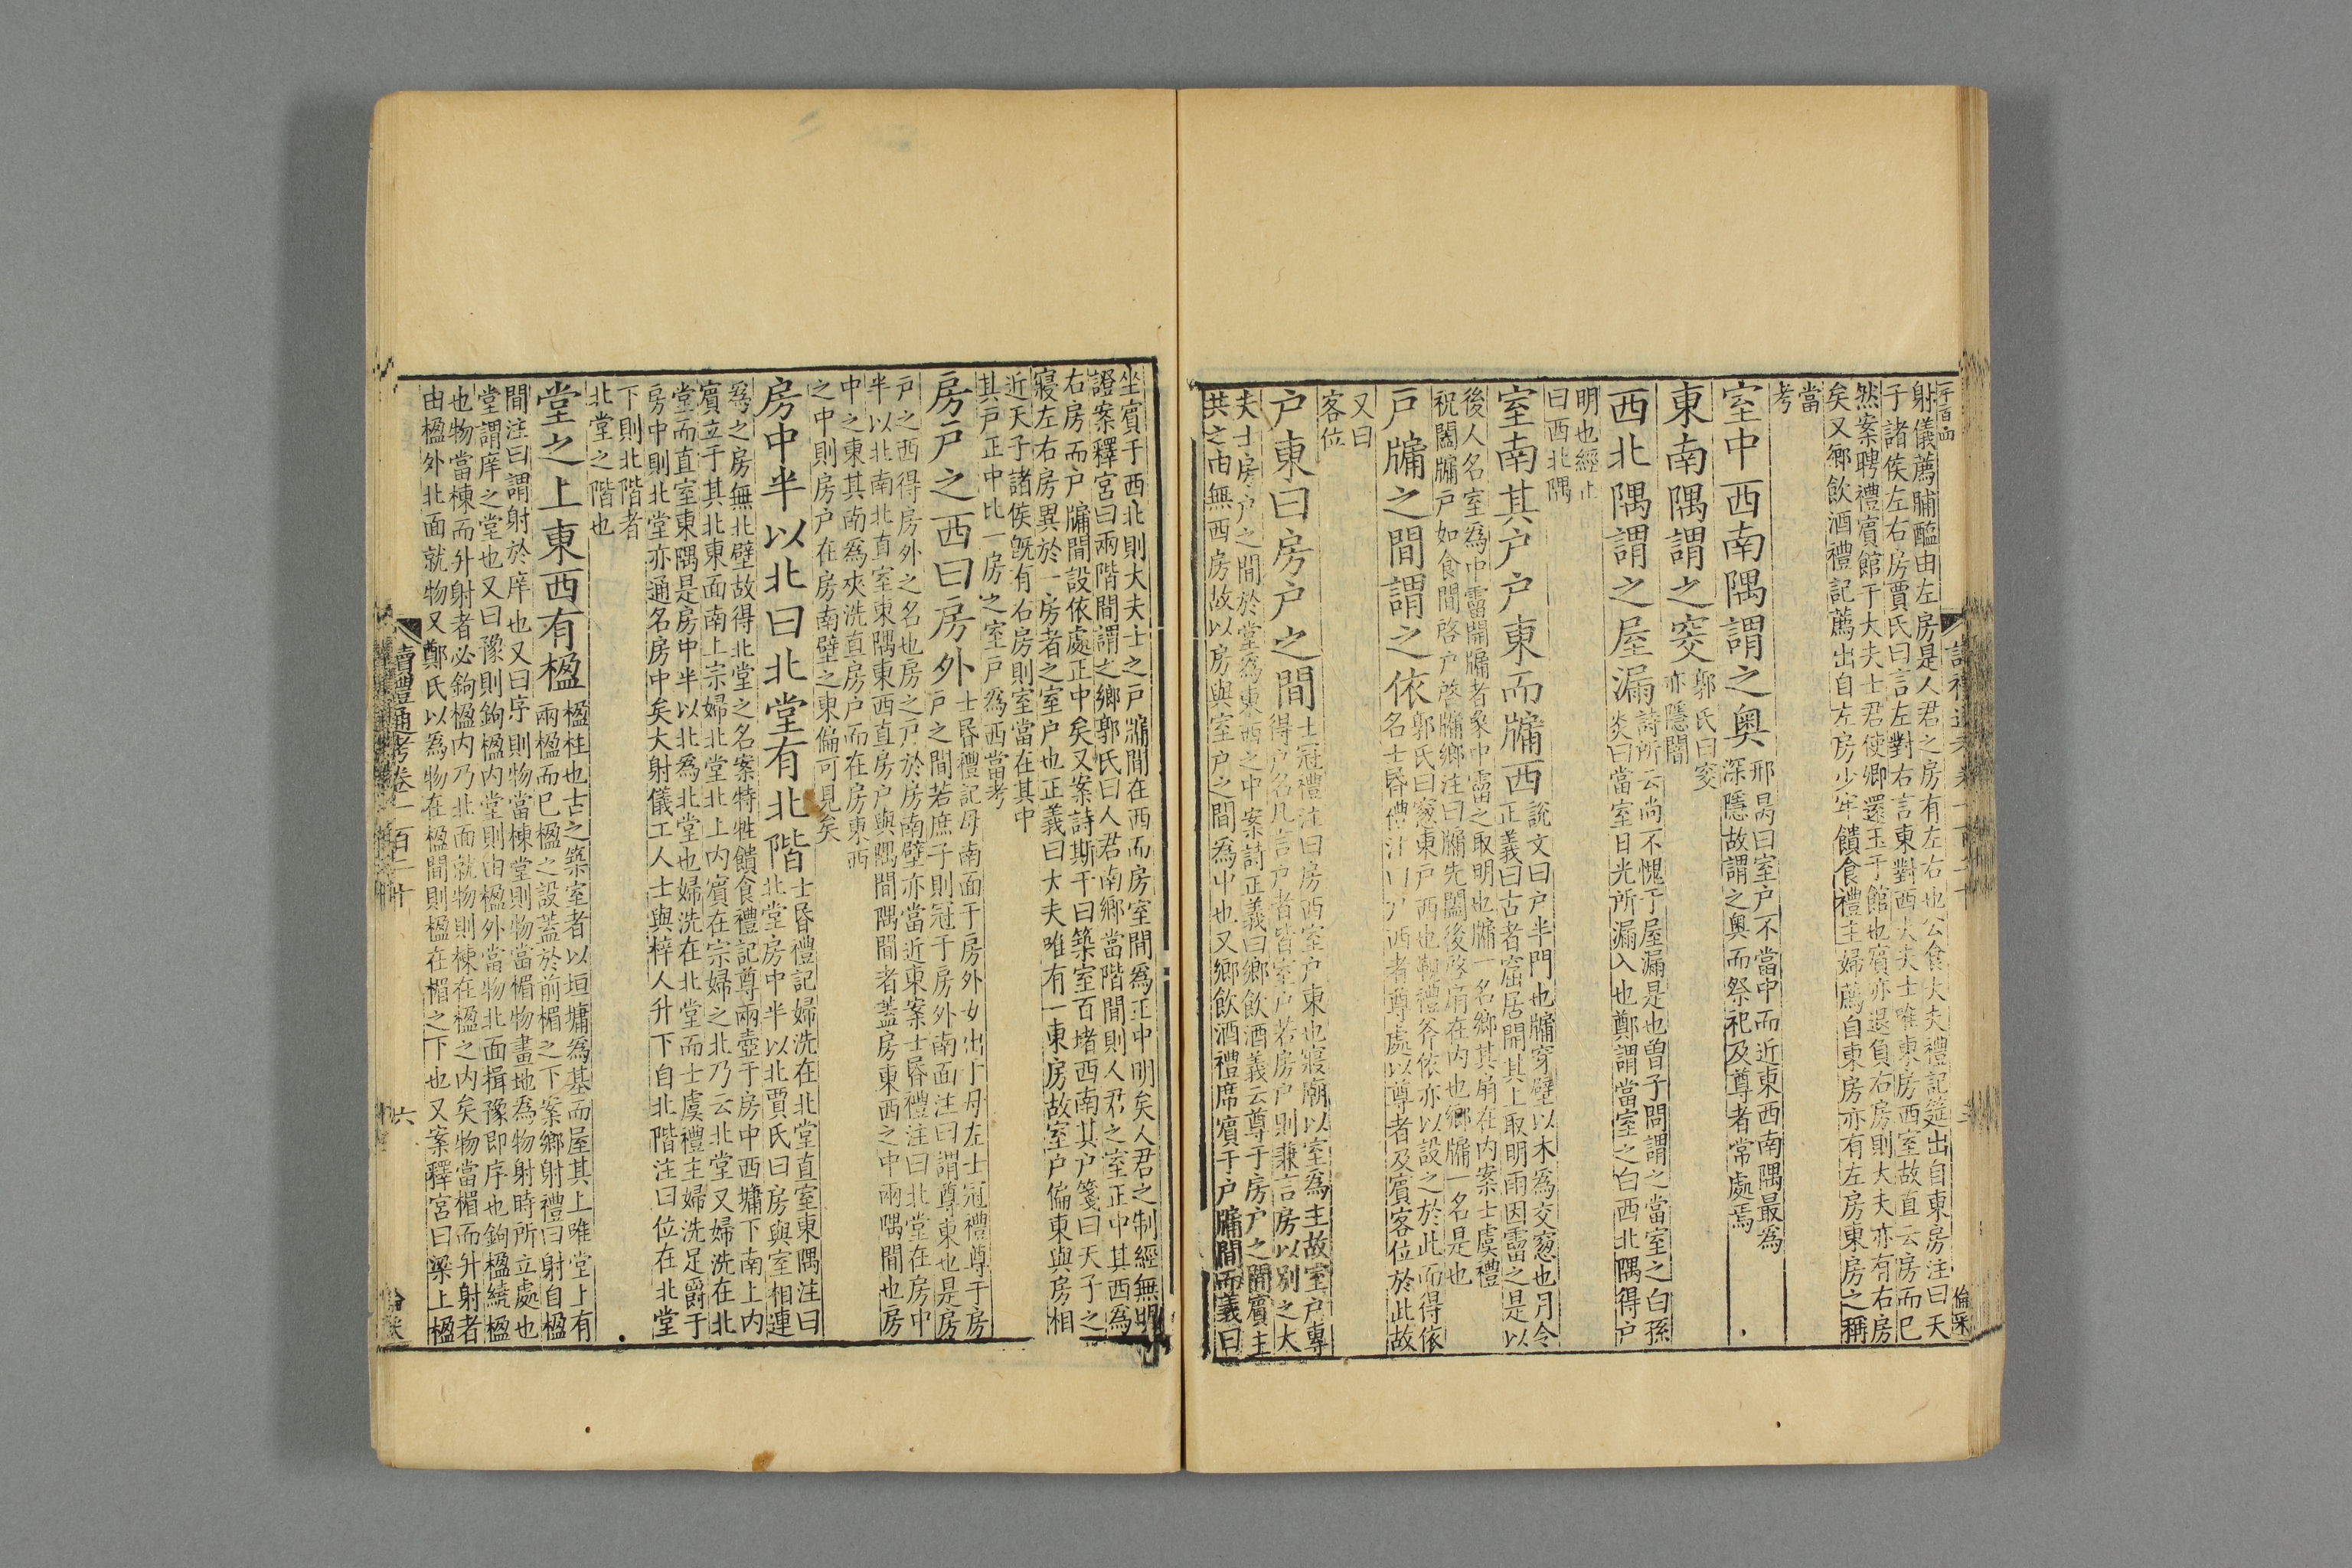 射儀薦脯醢由左房是人君之房有左右也公食大夫禮記筵出自東房注曰天
子諸侯左右房賈氏曰言左對右言東對西大夫士唯東房西室故直云房而已
然案聘禮賓館于大夫士君使卿還玉于館也賓亦退負右房則大夫亦有右房
矣又鄉飲酒禮記薦出自左房少牢饋食禮主婦薦自東房亦有左房東房之稱
當
考
室中西南隅謂之奥
邢昺曰室户不當中而近東西南隅最爲
深隱故謂之奥而祭祀及尊者常處焉
東南隅謂之窔
郭氏曰窔
亦隱闇
西北隅謂之屋漏
詩所云尚不愧于屋漏是也曾子問謂之當室之白孫
炎曰當室日光所漏入也鄭謂當室之白西北隅得户
明也經止
曰西北隅
室南其户户東而牖西
說文曰户半門也牖穿壁以木爲交窻也月令
正義曰古者窟居開其上取明雨因霤之是以
後人名室爲中霤開牖者象中霤之取明也牖一名鄉其扇在内案士虞禮
祝闔牖户如食間啓户啓牖鄉注曰牖先闔後啓扇在内也鄉牖一名是也
戸牖之間謂之依
郭氏曰窻東戸西也覲禮斧依亦以設之於此而得依
名士昏禮注曰以西者尊處以尊者及賓客位於此故
又曰
客位
户東曰房户之間
士冠禮注曰房西室户東也寢廟以室爲主故室户專
得户名凡言户者皆室户若房户則兼言房以别之大
夫士房户之間於堂爲東西之中案詩正義曰鄉飲酒義云尊于房户之間賓主
共之由無西房故以房與室户之間爲中也又鄉飲酒禮席賓于户牖間而義曰
坐賓于西北則大夫士之戸牖間在西而房室間爲正中明矣人君之制經無明
證案釋宮曰兩階間謂之鄉郭氏曰人君南鄉當階間則人君之室正中其西爲
右房而户牖間設依處正中矣又案詩斯干曰築室百堵西南其户箋曰天子之
寢左右房異於一房者之室户也正義曰大夫唯有一東房故室户偏東與房相
近天子諸侯旣有右房則室當在其中
其户正中比一房之室戸爲西當考
房戸之西曰房外
士昏禮記母南面于房外女出于母左士冠禮尊于房
戸之間若庶子則冠于房外南面注曰謂尊東也是房
戸之西得房外之名也房之戸於房南壁亦當近東案士昏禮注曰北堂在房中
半以北南北直室東隅東西直房户與隅間隅間者蓋房東西之中兩隅間也房
中之東其南爲夾洗直房户而在房東西
之中則房户在房南壁之東偏可見矣
房中半以北曰北堂有北階
士昏禮記婦洗在北堂直室東隅注曰
北堂房中半以北賈氏曰房與室相連
爲之房無北壁故得北堂之名案特牲饋食禮記尊兩壺于房中西墉下南上内
賓立于其北東面南上宗婦北堂北上内賓在宗婦之北乃云北堂又婦洗在北
堂而直室東隅是房中半以北爲北堂也婦洗在北堂而士虞禮主婦洗足爵于
房中則北堂亦通名房中矣大射儀工人士與梓人升下自北階注曰位在北堂
下則北階者
北堂之階也
堂之上東西有楹
楹柱也古之築室者以垣墉爲基而屋其上唯堂上有
兩楹而已楹之設蓋於前楣之下案鄉射禮曰射自楹
間注曰謂射於庠也又曰序則物當棟堂則物當楣物畫地爲物射時所立處也
堂謂庠之堂也又曰豫則鉤楹内堂則由楹外當物北面揖豫即序也鉤楹繞楹
也物當棟而升射者必鉤楹内乃北面就物則棟在楹之内矣物當楣而升射者
由楹外北面就物又鄭氏以爲物在楹間則楹在楣之下也又案釋宮曰梁上楹
讀禮通考卷一百二十
六